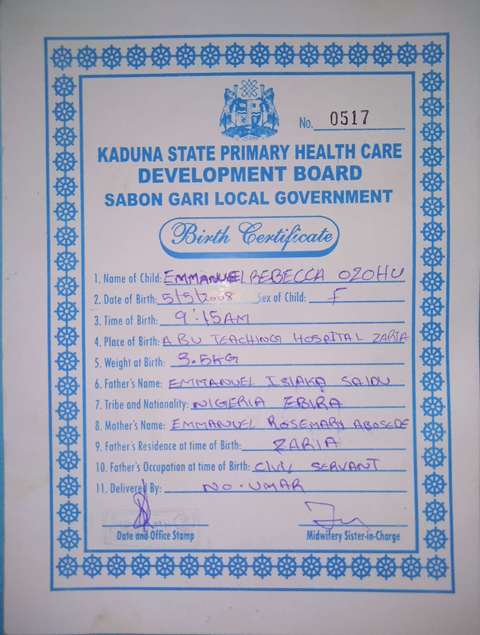 No. 0517
KADUNA STATE PRIMARY HEALTH CARE
DEVELOPMENT BOARD
SABON GARI LOCAL GOVERNMENT
Birth Certificate
1. Name of Child: EMMANUEL REBECCA OZOHU
2. Date of Birth: 5/5/2008 Sex of Child: F
3. Time of Birth: 9:15AM
4. Place of Birth: ABU TEACHING HOSPITAL ZARIA
5. Weight at Birth: 3.5KG
6. Father's Name: EMMANUEL ISIAKA SAIDU
7. Tribe and Nationality: NIGERIA EBIRA
8. Mother's Name: EMMANUEL ROSEMARY ABOSEDE
9. Father's Residence at time of Birth: ZARIA
10. Father's Occupation at time of Birth: CIVIL SERVANT
11. Delivered By: NO. UMAR
Date and Office Stamp Midwifery Sister-in-Charge